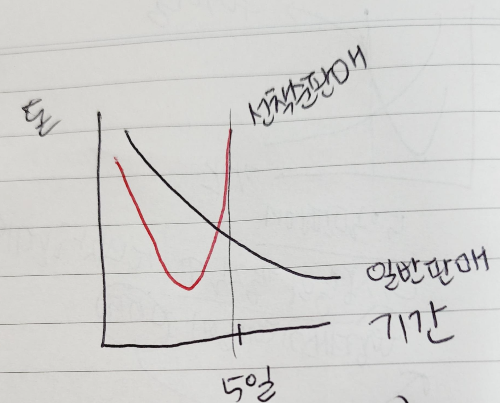 돈
선착순판매
일반판매
기간
5일